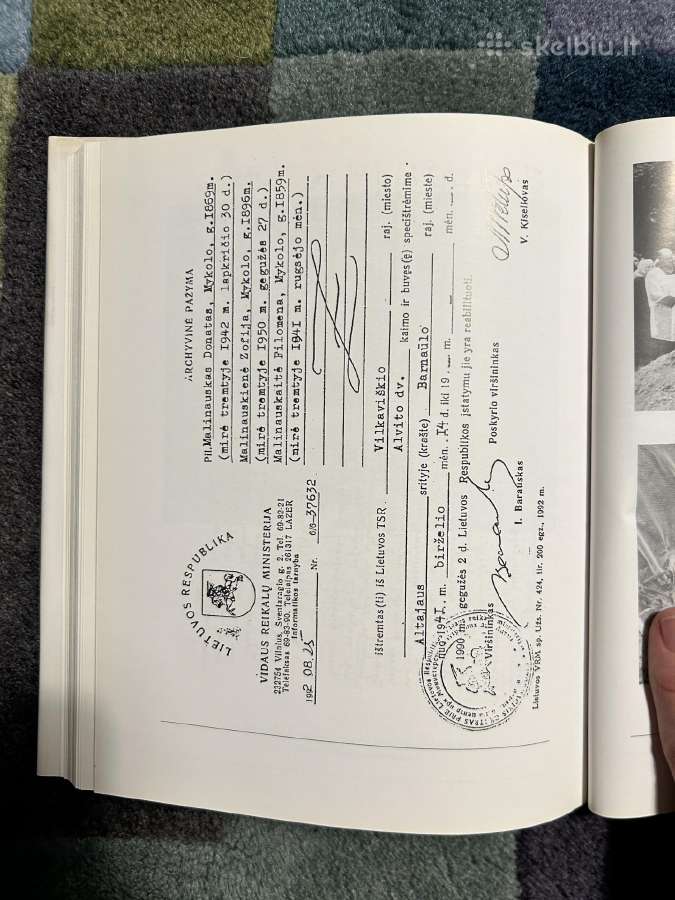 skelbiu.lt
LIETUVOS RESPUBLIKA
VIDAUS REIKALŲ MINISTERIJA
232754 Vilnius, Šventaragio g. 2. Tel. 69-83-21
Telefaksas 69-83-90. Teletaipas 261317 LAZER
Informatikos tarnyba
1992 08.25 Nr. 6/6-37632
ARCHYVINĖ PAŽYMA
Pil. Malinauskas Donatas, Mykolo, g.1869m.
(mirė tremtyje 1942 m. lapkričio 30 d.)
Malinauskienė Zofija, Mykolo, g.1896m.
(mirė tremtyje 1950 m. gegužės 27 d.)
Malinauskaitė Filomena, Mykolo, g.1859m.
(mirė tremtyje 1941 m. rugsėjo mėn.)
ištremtas(ti) iš Lietuvos TSR. Vilkaviškio raj. (miesto)
Alvito dv. kaimo ir buvęs(ę) specištrėmime
Altajaus srityje (krašte) Barnaūlo raj. (mieste)
nuo 1941. m. birželio mėn. 14 d. iki 19 m. mėn. d.
1990 m. gegužės 2 d. Lietuvos Respublikos įstatymu jie yra reabilituoti.
Viršininkas I. Barauskas
Poskyrio viršininkas V. Kiseliovas
Lietuvos VRM sp. Užs. Nr. 424, tir. 200 egz., 1992 m.